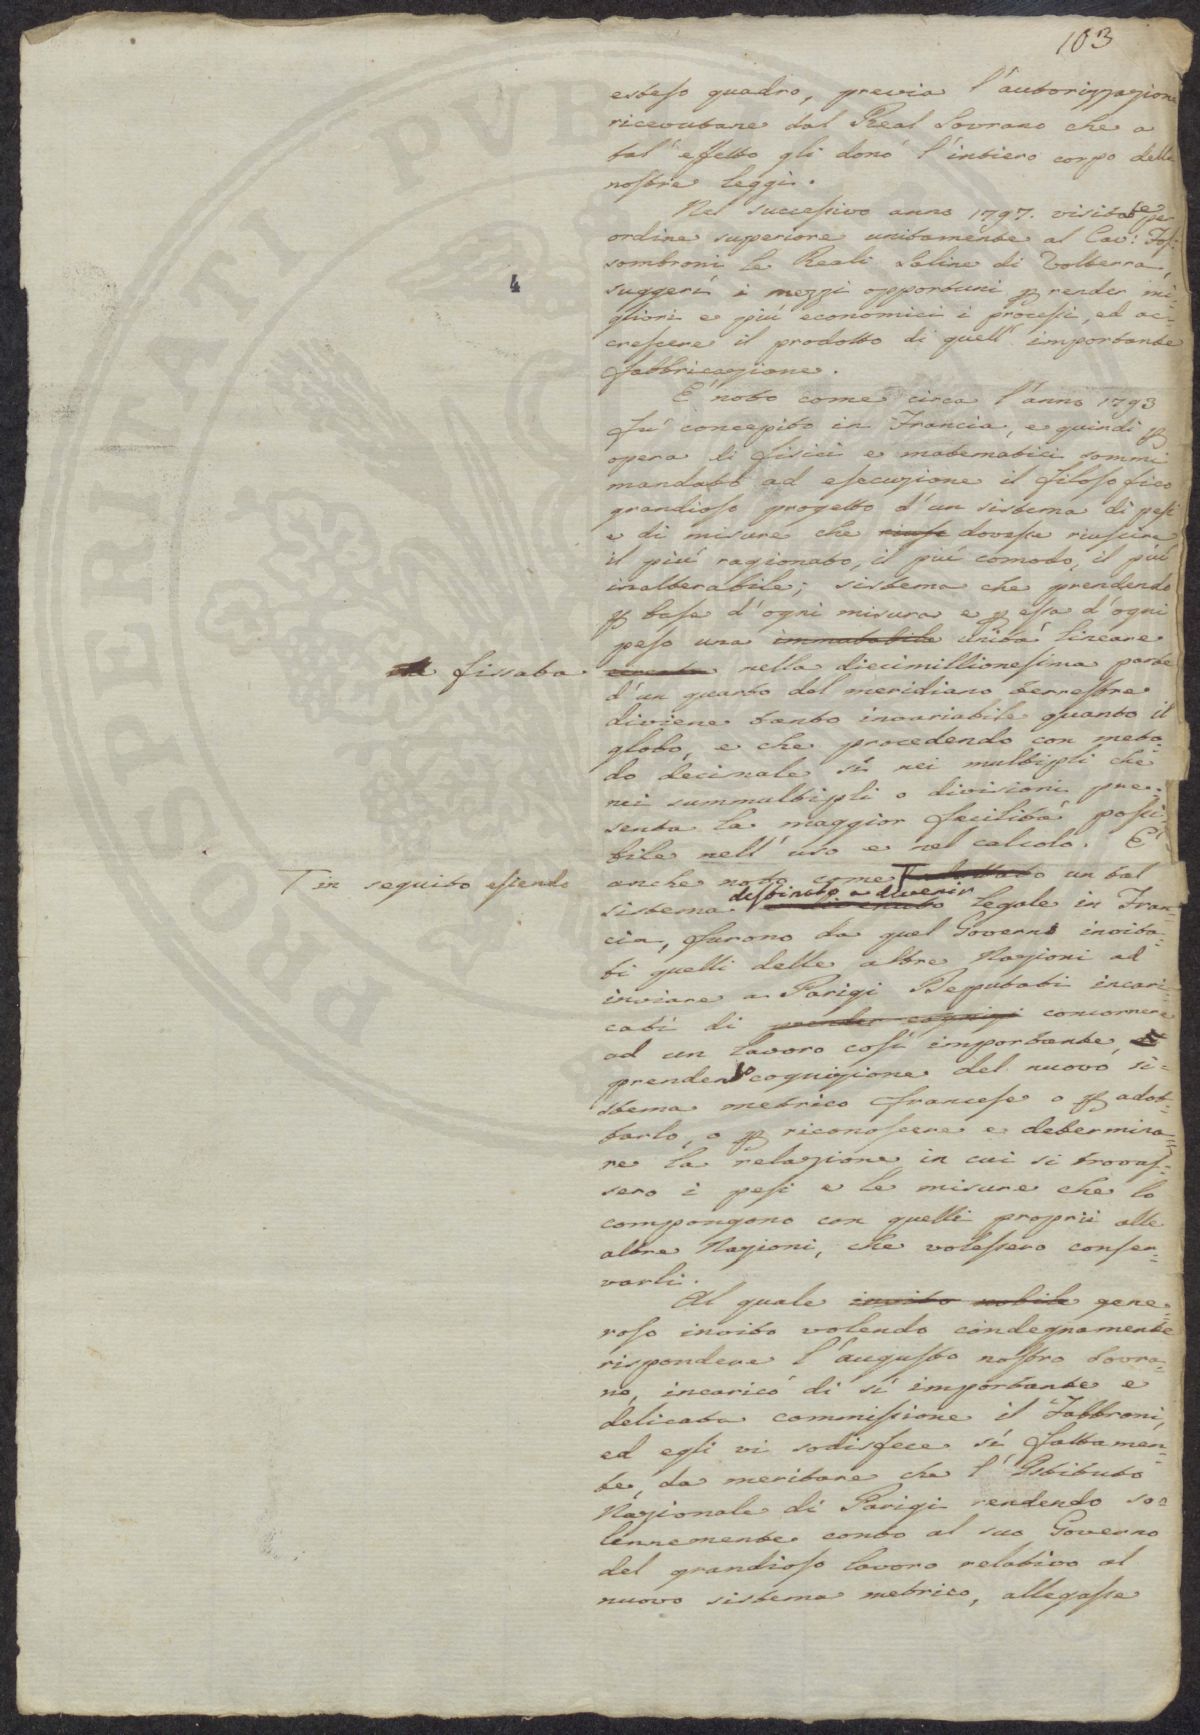 103
esteso quadro, previa l'autorizzazione
ricevutane dal Real Sovrano che a
tal'effetto gli donò l'intiero corpo delle
nostre leggi.
Nel successivo anno 1797. visitate per
ordine superiore unitamente al Cav: Fos-
sombroni le Reali Saline di Volterra,
4
suggerì i mezzi opportuni p render mi-
gliori e più economici i processi, ed ac-
crescere il prodotto di quell'importante
fabbricazione.
È noto come circa l'anno 1793
fu concepito in Francia, e quindi p
opera di fisici e matematici sommi
mandato ad esecuzione il filosofico
grandioso progetto d'un sistema di pesi
e di misure che riusi dovesse riuscire
il più ragionato, il più comodo, il più
inalterabile; sistema che prendendo
p base d'ogni misura e p essa d'ogni
peso una immutabile unità lineare
fissata nella diecimillionesima parte
d'un quarto del meridiano terrestre
diviene tanto invariabile quanto il
globo, e che procedendo con meto-
do decimale sì nei multipli che
nei summultipli o divisioni pre-
senta la maggior facilità possi-
bile nell'uso e nel calcolo. È
T in seguito essendo
anche noto come T un tal
destinato a divenir
sistema è divenuto legale in Fran-
cia, furono da quel Governo invita-
ti quelli delle altre Nazioni ad
inviare a Parigi Deputati incari-
cati di prender cognizi concorrere
ad un lavoro così importante, e
prender cognizione del nuovo si-
stema metrico francese o p adot-
tarlo, o p riconoscere e determina-
re la relazione in cui si trovas-
sero i pesi e le misure che lo
compongono con quelli proprii alle
altre Nazioni, che volessero conser-
varli.
Al quale invito nobile gene-
roso invito volendo condegnamente
rispondere l'augusto nostro Sovra-
no, incaricò di sì importante e
delicata commissione il Fabbroni,
ed egli vi sodisfece sì fattamen-
te, da meritare che l'Istituto
Nazionale di Parigi rendendo so-
lennemente conto al suo Governo
del grandioso lavoro relativo al
nuovo sistema metrico, allegasse